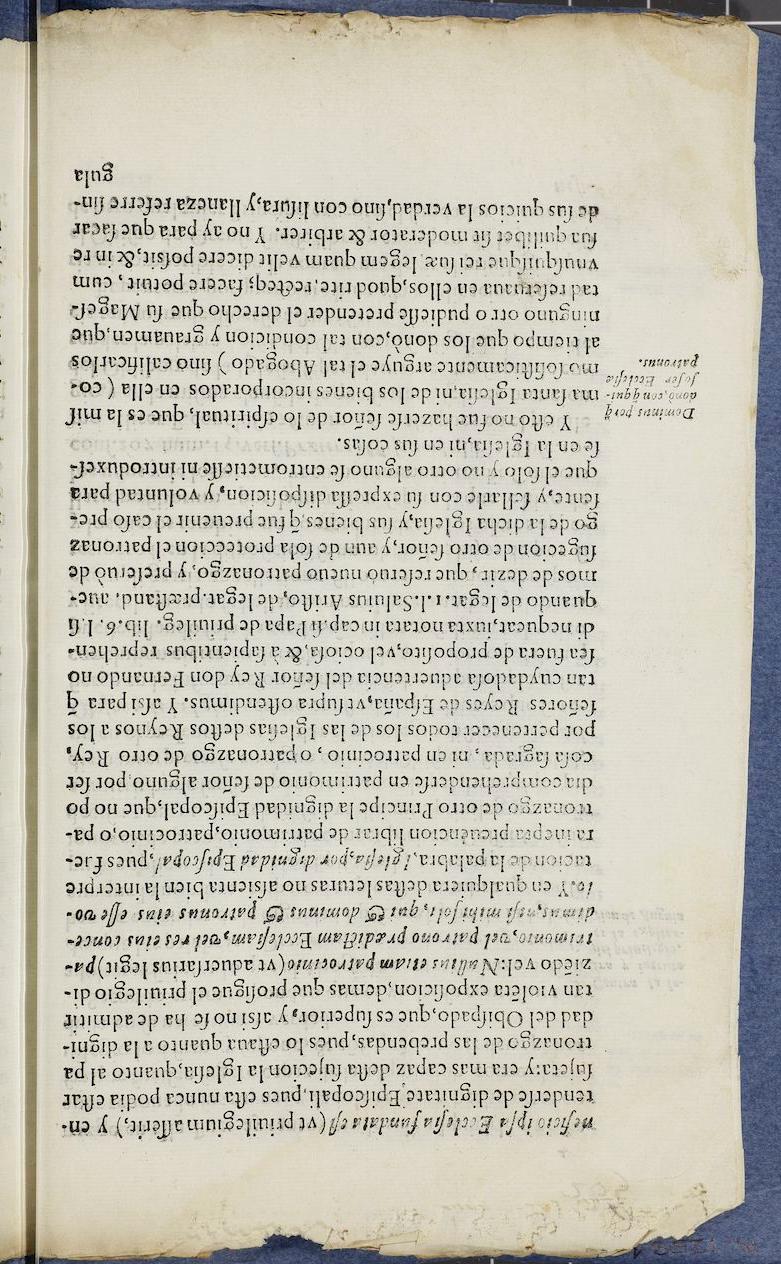 neficio ipsa Ecclesia fundata est (vt priuilegium asserit,) y en-
tenderse de dignitate Episcopali, pues esta nunca podia estar
sujeta: y era mas capaz desta sujecion la Iglesia, quanto al pa
tronazgo de las prebendas, pues lo estaua quanto a la digni-
dad del Obispado, que es superior, y asi no se ha de admitir
tan violẽta exposicion, demas que prosigue el priuilegio di-
ziẽdo vel: Nullius etiam patrocinio (vt aduersarius legit) pa-
trimonio, vel patrono prædictam Ecclesiam, vel res eius conce-
dimus, nisi mihi soli, qui & dominus & patronus eius esse vo-
lo. Y en qualquiera destas leturas no asienta bien la interpre
tacion de la palabra, Iglesia, por dignidad Episcopal, pues fue-
ra inepta preuencion librar de patrimonio, patrocinio, o pa-
tronazgo de otro Principe la dignidad Episcopal, que no po
dia comprehenderse en patrimonio de señor alguno por ser
cosa sagrada, ni en patrocinio, o patronazgo de otro Rey,
por pertenecer todos los de las Iglesias destos Reynos a los
señores Reyes de España, vt supra ostendimus. Y asi para q̃
tan cuydadosa aduertencia del señor Rey don Fernando no
sea fuera de proposito, vel ociosa, & à sapientibus reprehen-
di nequeat, iuxta notata in cap. si Papa de priuileg. lib. 6. l. si
quando de legat. 1. l. Saluius Aristo, de legat. præstand. aue-
mos de dezir, que reseruo nueuo patronazgo, y preseruò de
sugecion de otro señor, y aun de sola proteccion el patronaz
go de la dicha Iglesia, y sus bienes, q̃ fue preuenir el caso pre-
sente, y sellarle con su expressa disposicion, y voluntad para
que el solo y no otro alguno se entrometiesse ni introduxes-
se en la Iglesia, ni en sus cosas.
Y esto no fue hazerse señor de lo espiritual, que es la mis
ma santa Iglesia, ni de los bienes incorporados en ella (co-
mo sofisticamente arguye el tal Abogado) sino calificarlos
al tiempo que los donò, con tal condicion y grauamen, que
ninguno otro pudiesse pretender el derecho que su Mages-
tad reseruaua en ellos, quod rite, recteq; facere potuit, cum
vnusquisque rei suæ legem quam velit dicere possit, & in re
sua quilibet sit moderator & arbiter. Y no ay para que sacar
de sus quicios la verdad, sino con lisura, y llaneza referre sin-
gula
Dominus perq̃
dono, con q̃ qui-
so ser Ecclesiæ
patronus.